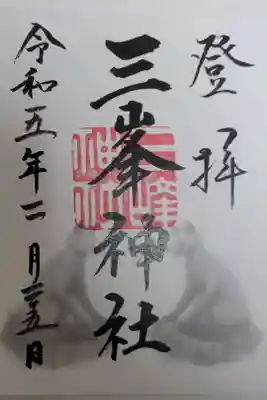 登拝
三峯神社
令和五年二月二五日